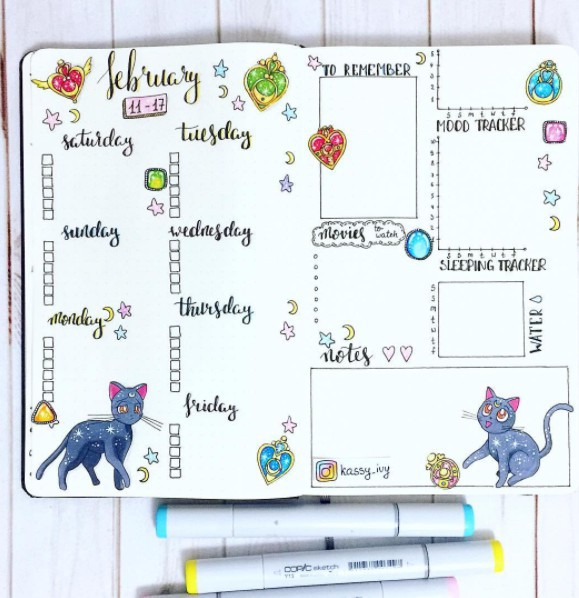 february
11-17
saturday
tuesday
sunday
wednesday
monday
thursday
friday
TO REMEMBER
MOOD TRACKER
s s m t w t f
movies to watch
SLEEPING TRACKER
s s m t w t f
WATER
notes
kassy_ivy
COPIC sketch